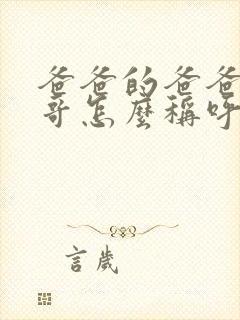 爸爸的爸爸
哥怎麼稱呼
言歲